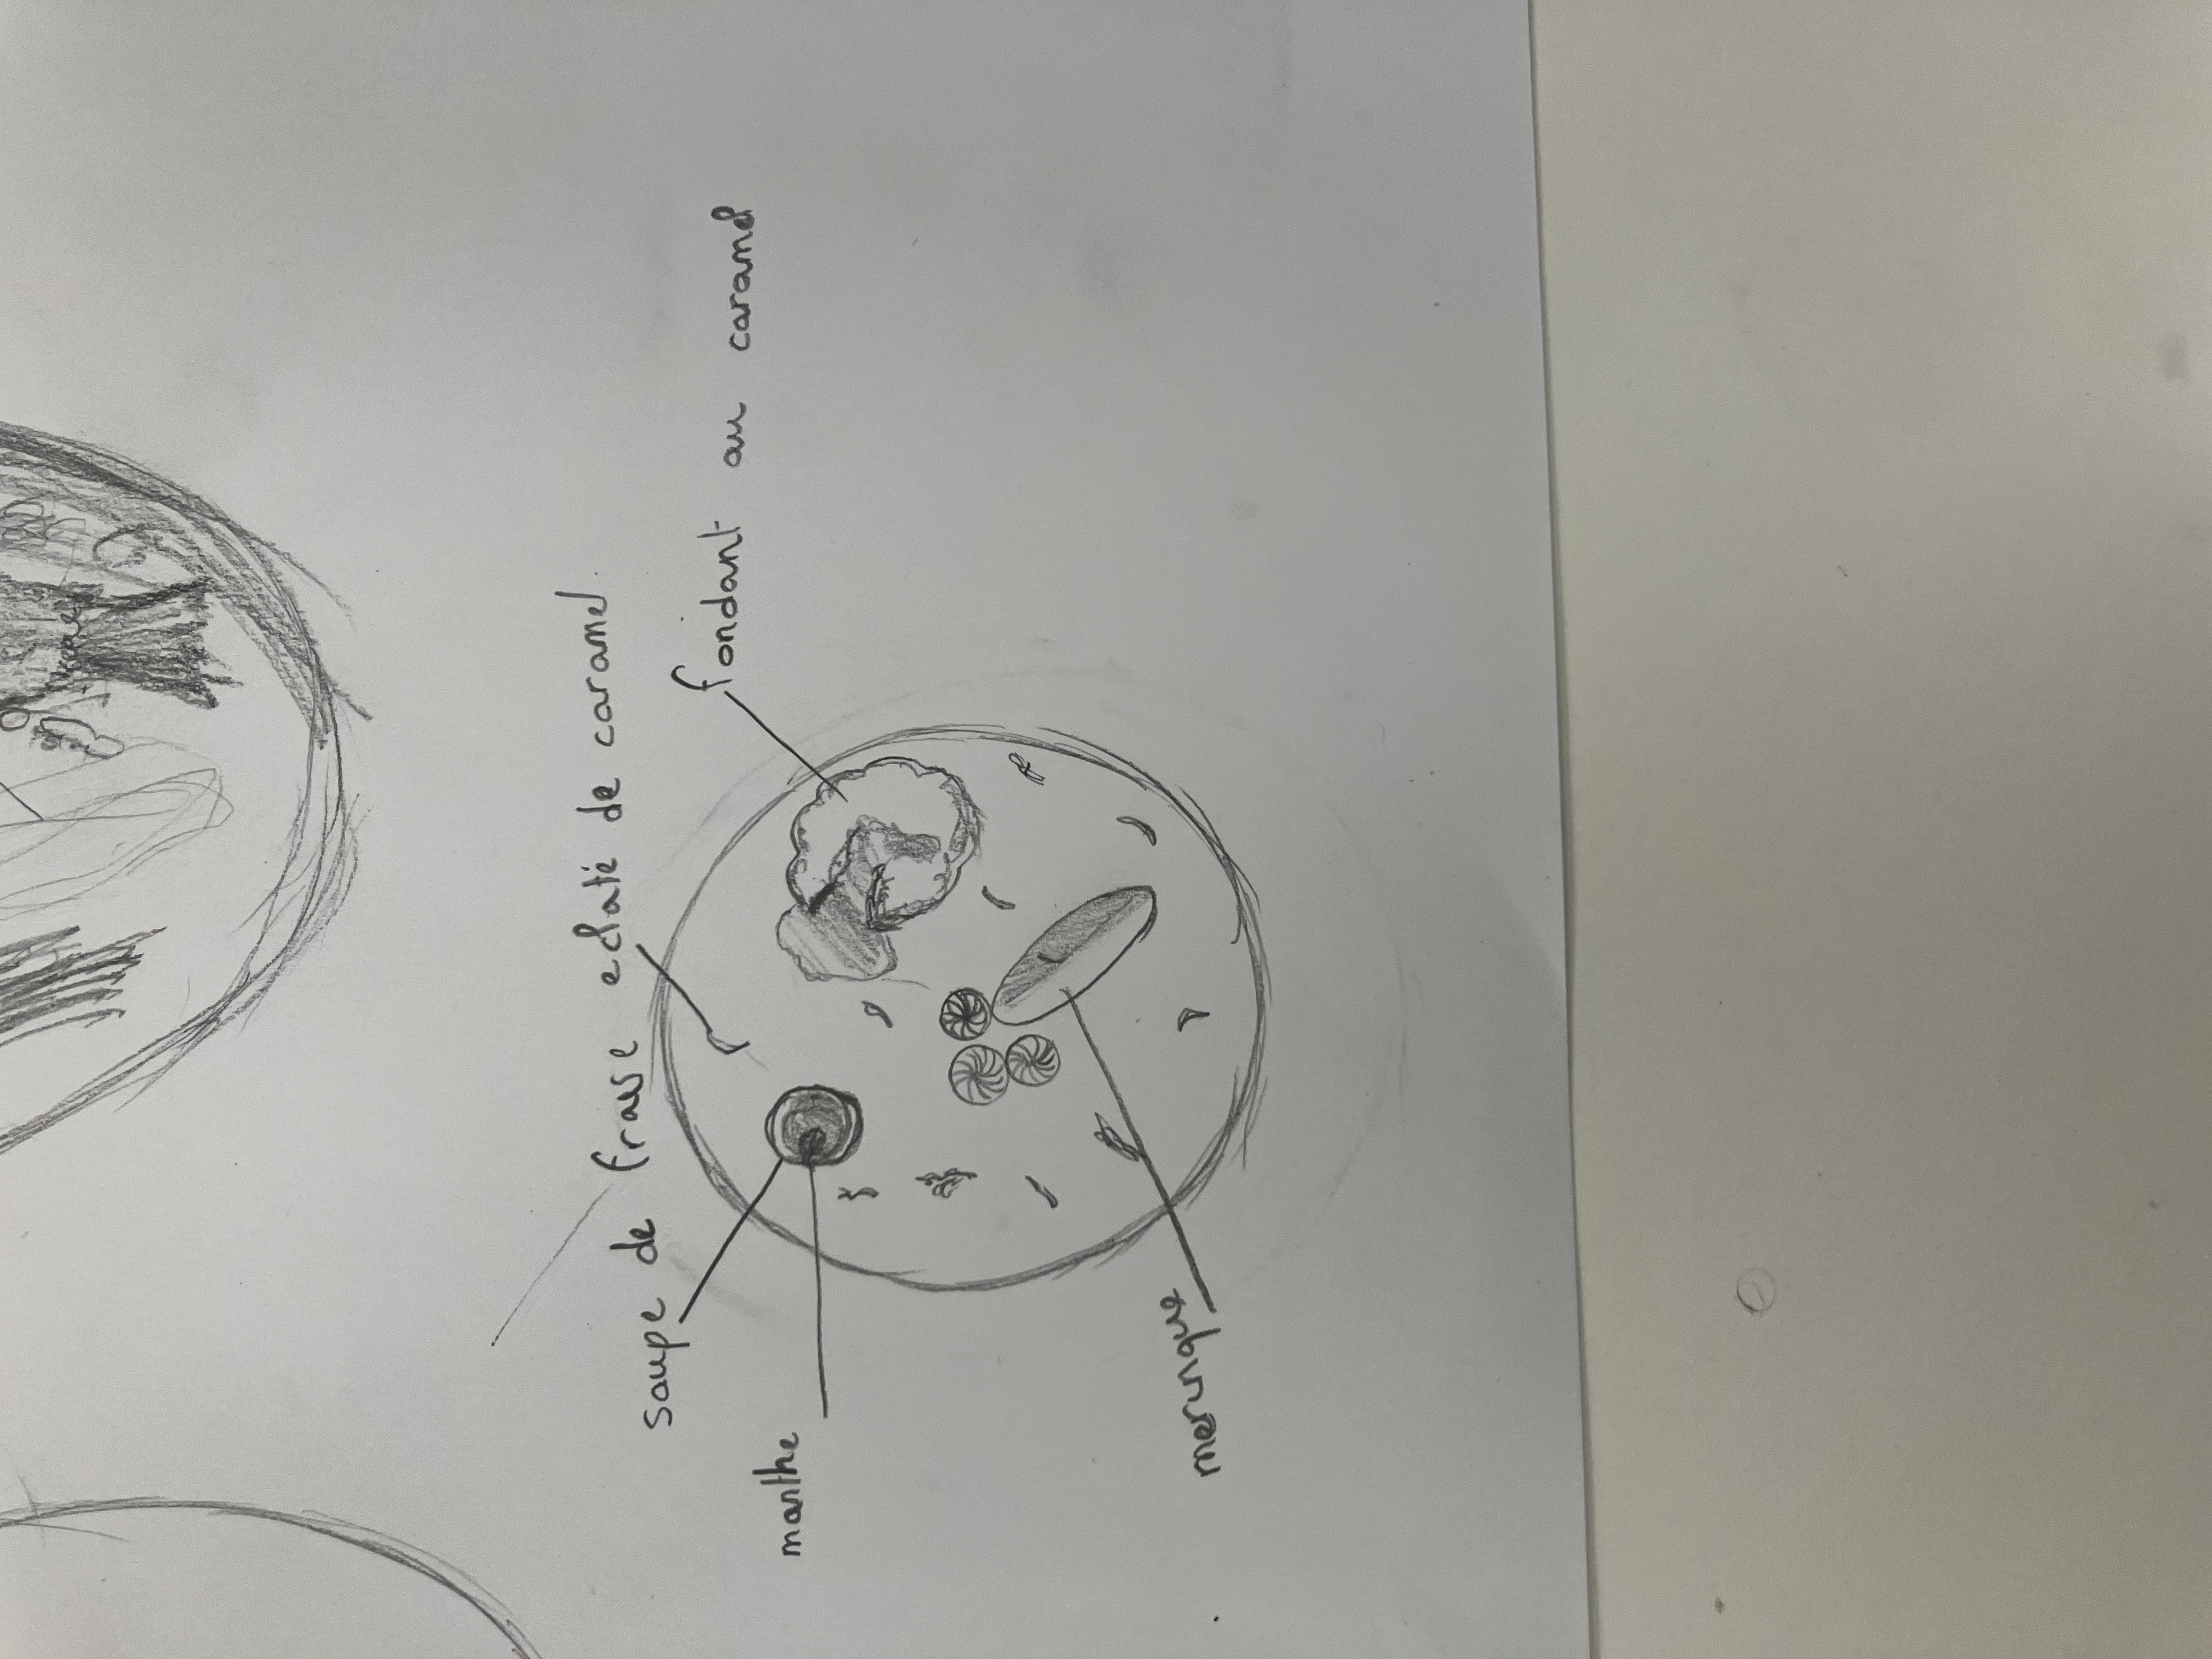 soupe de fraise
eclaté de caramel.
fondant au caramel
manthe
meringue